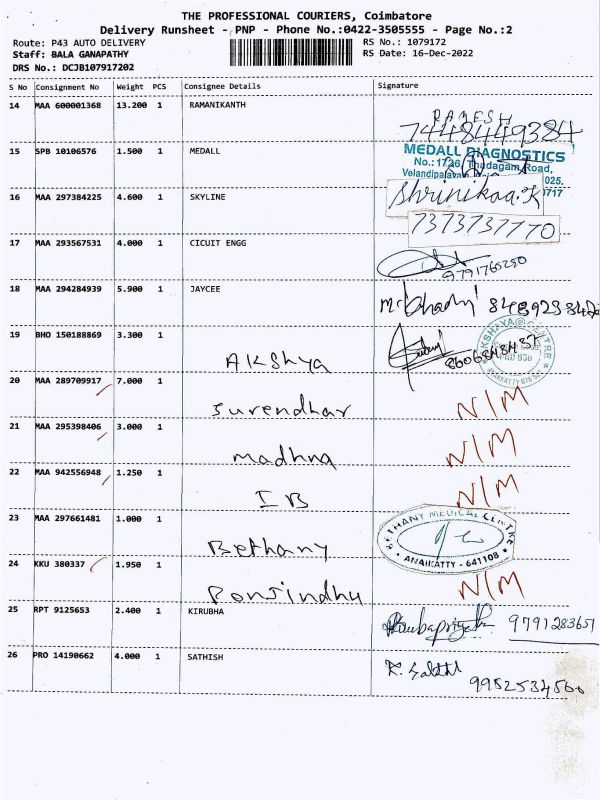 THE PROFESSIONAL COURIERS, Coimbatore
Delivery Runsheet - PNP - Phone No.:0422-3505555 - Page No.:2
Route: P43 AUTO DELIVERY RS No.: 1079172
Staff: BALA GANAPATHY RS Date: 16-Dec-2022
DRS No.: DCJB107917202
S No Consignment No Weight PCS Consignee Details Signature
14 MAA 600001368 13.200 1 RAMANIKANTH RAMESH
7448449384
15 SPB 10106576 1.500 1 MEDALL MEDALL DIAGNOSTICS
No.: 1726, Thadagam Road,
Velandipalayam 025,
0717
16 MAA 297384225 4.600 1 SKYLINE Shrinikaa.K
7373737770
17 MAA 293567531 4.000 1 CICUIT ENGG
9791765250
18 MAA 294284939 5.900 1 JAYCEE
19 BHO 150188869 3.300 1 Akshya AKSHAYA CENTRE
20 MAA 289709917 7.000 1 Surendhar N/M
21 MAA 295398406 3.000 1 Madhna N/M
22 MAA 942556948 1.250 1 IB N/M
23 MAA 297661481 1.000 1 Bethany BETHANY MEDICAL CENTRE
ANAIKATTY - 641108
24 KKU 380337 1.950 1 Ponsindhu N/M
25 RPT 9125653 2.400 1 KIRUBHA 9791283657
26 PRO 14190662 4.000 1 SATHISH